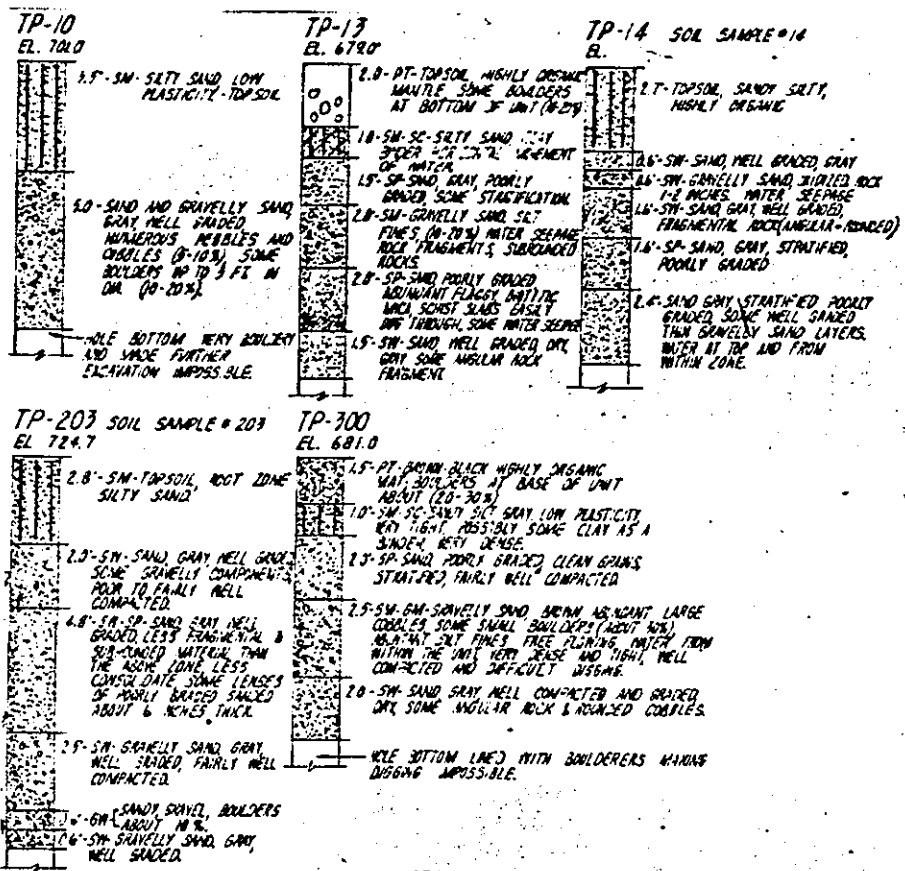 TP-10
EL. 701.0
3.5'-SM-SILTY SAND, LOW
PLASTICITY-TOPSOIL
5.0-SAND AND GRAVELLY SAND,
GRAY, WELL GRADED,
NUMEROUS PEBBLES AND
COBBLES SOME
BOULDERS UP TO 3 FT. IN
DIA. (10-20%).
HOLE BOTTOM VERY BOULDERY
AND MADE FURTHER
EXCAVATION IMPOSSIBLE.
TP-13
EL. 679.0
2.0-PT-TOPSOIL, HIGHLY ORGANIC
MANTLE SOME BOULDERS
AT BOTTOM OF UNIT
1.0-SM-SC-SILTY SAND, CLAY
BINDER MOVEMENT
OF WATER.
1.5'-SP-SAND, GRAY, POORLY
GRADED, SOME STRATIFICATION
2.0-SM-GRAVELLY SAND, SILT
FINES (10-20%) WATER SEEPAGE
ROCK FRAGMENTS, SUBROUNDED
ROCKS.
2.0'-SP-SAND, POORLY GRADED
ABUNDANT FLAGGY,
MICA SCHIST SLABS EASILY
DUG THROUGH, SOME WATER
1.5'-SW-SAND, WELL GRADED, DRY,
GRAY SOME ANGULAR ROCK
FRAGMENT
TP-14 SOIL SAMPLE #14
EL.
2.7'-TOPSOIL, SANDY SILTY,
HIGHLY ORGANIC
0.6'-SW-SAND, WELL GRADED, GRAY
SW-GRAVELLY SAND, OXIDIZED, ROCK
INCHES. WATER SEEPAGE
SW-SAND, GRAY, WELL GRADED,
FRAGMENTAL ROCK (ANGULAR-ROUNDED)
1.6'-SP-SAND, GRAY, STRATIFIED,
POORLY GRADED
SAND GRAY, STRATIFIED POORLY
GRADED, SOME WELL GRADED
THIN GRAVELLY SAND LAYERS.
WATER AT TOP AND FROM
WITHIN ZONE.
TP-203 SOIL SAMPLE #203
EL 724.7
2.8'-SM-TOPSOIL, ROOT ZONE
SILTY SAND.
2.0'-SW-SAND, GRAY WELL GRADED
SOME GRAVELLY COMPONENTS,
POOR TO FAIRLY WELL
COMPACTED.
4.8'-SW-SP-SAND GRAY WELL
GRADED, LESS FRAGMENTAL &
MATERIAL THAN
THE ABOVE ZONE, LESS
CONSOLIDATE SOME LENSES
OF POORLY GRADED
ABOUT 6 INCHES THICK.
2.5'-SW-GRAVELLY SAND, GRAY,
WELL GRADED, FAIRLY WELL
COMPACTED.
GW SANDY GRAVEL, BOULDERS
ABOUT 10%.
SW-GRAVELLY SAND, GRAY,
WELL GRADED.
TP-300
EL. 681.0
1.5'-PT-BROWN-BLACK HIGHLY ORGANIC
MAT, BOULDERS AT BASE OF UNIT
ABOUT (20-30%)
1.0'-SM-SC-SANDY SILT GRAY, LOW PLASTICITY,
VERY TIGHT, POSSIBLY SOME CLAY AS A
BINDER VERY DENSE.
SP-SAND, POORLY GRADED, CLEAN GRAINS,
STRATIFIED, FAIRLY WELL COMPACTED.
2.5'-SW-GM-GRAVELLY SAND BROWN ABUNDANT LARGE
COBBLES, SOME SMALL BOULDERS
ABUNDANT SILT FINES FREE FLOWING WATER FROM
WITHIN THE UNIT VERY DENSE AND TIGHT, WELL
COMPACTED AND DIFFICULT DIGGING.
2.0-SW-SAND GRAY, WELL COMPACTED AND GRADED,
DRY, SOME ANGULAR ROCK & ROUNDED COBBLES.
HOLE BOTTOM LINED WITH BOULDERERS MAKING
DIGGING IMPOSSIBLE.